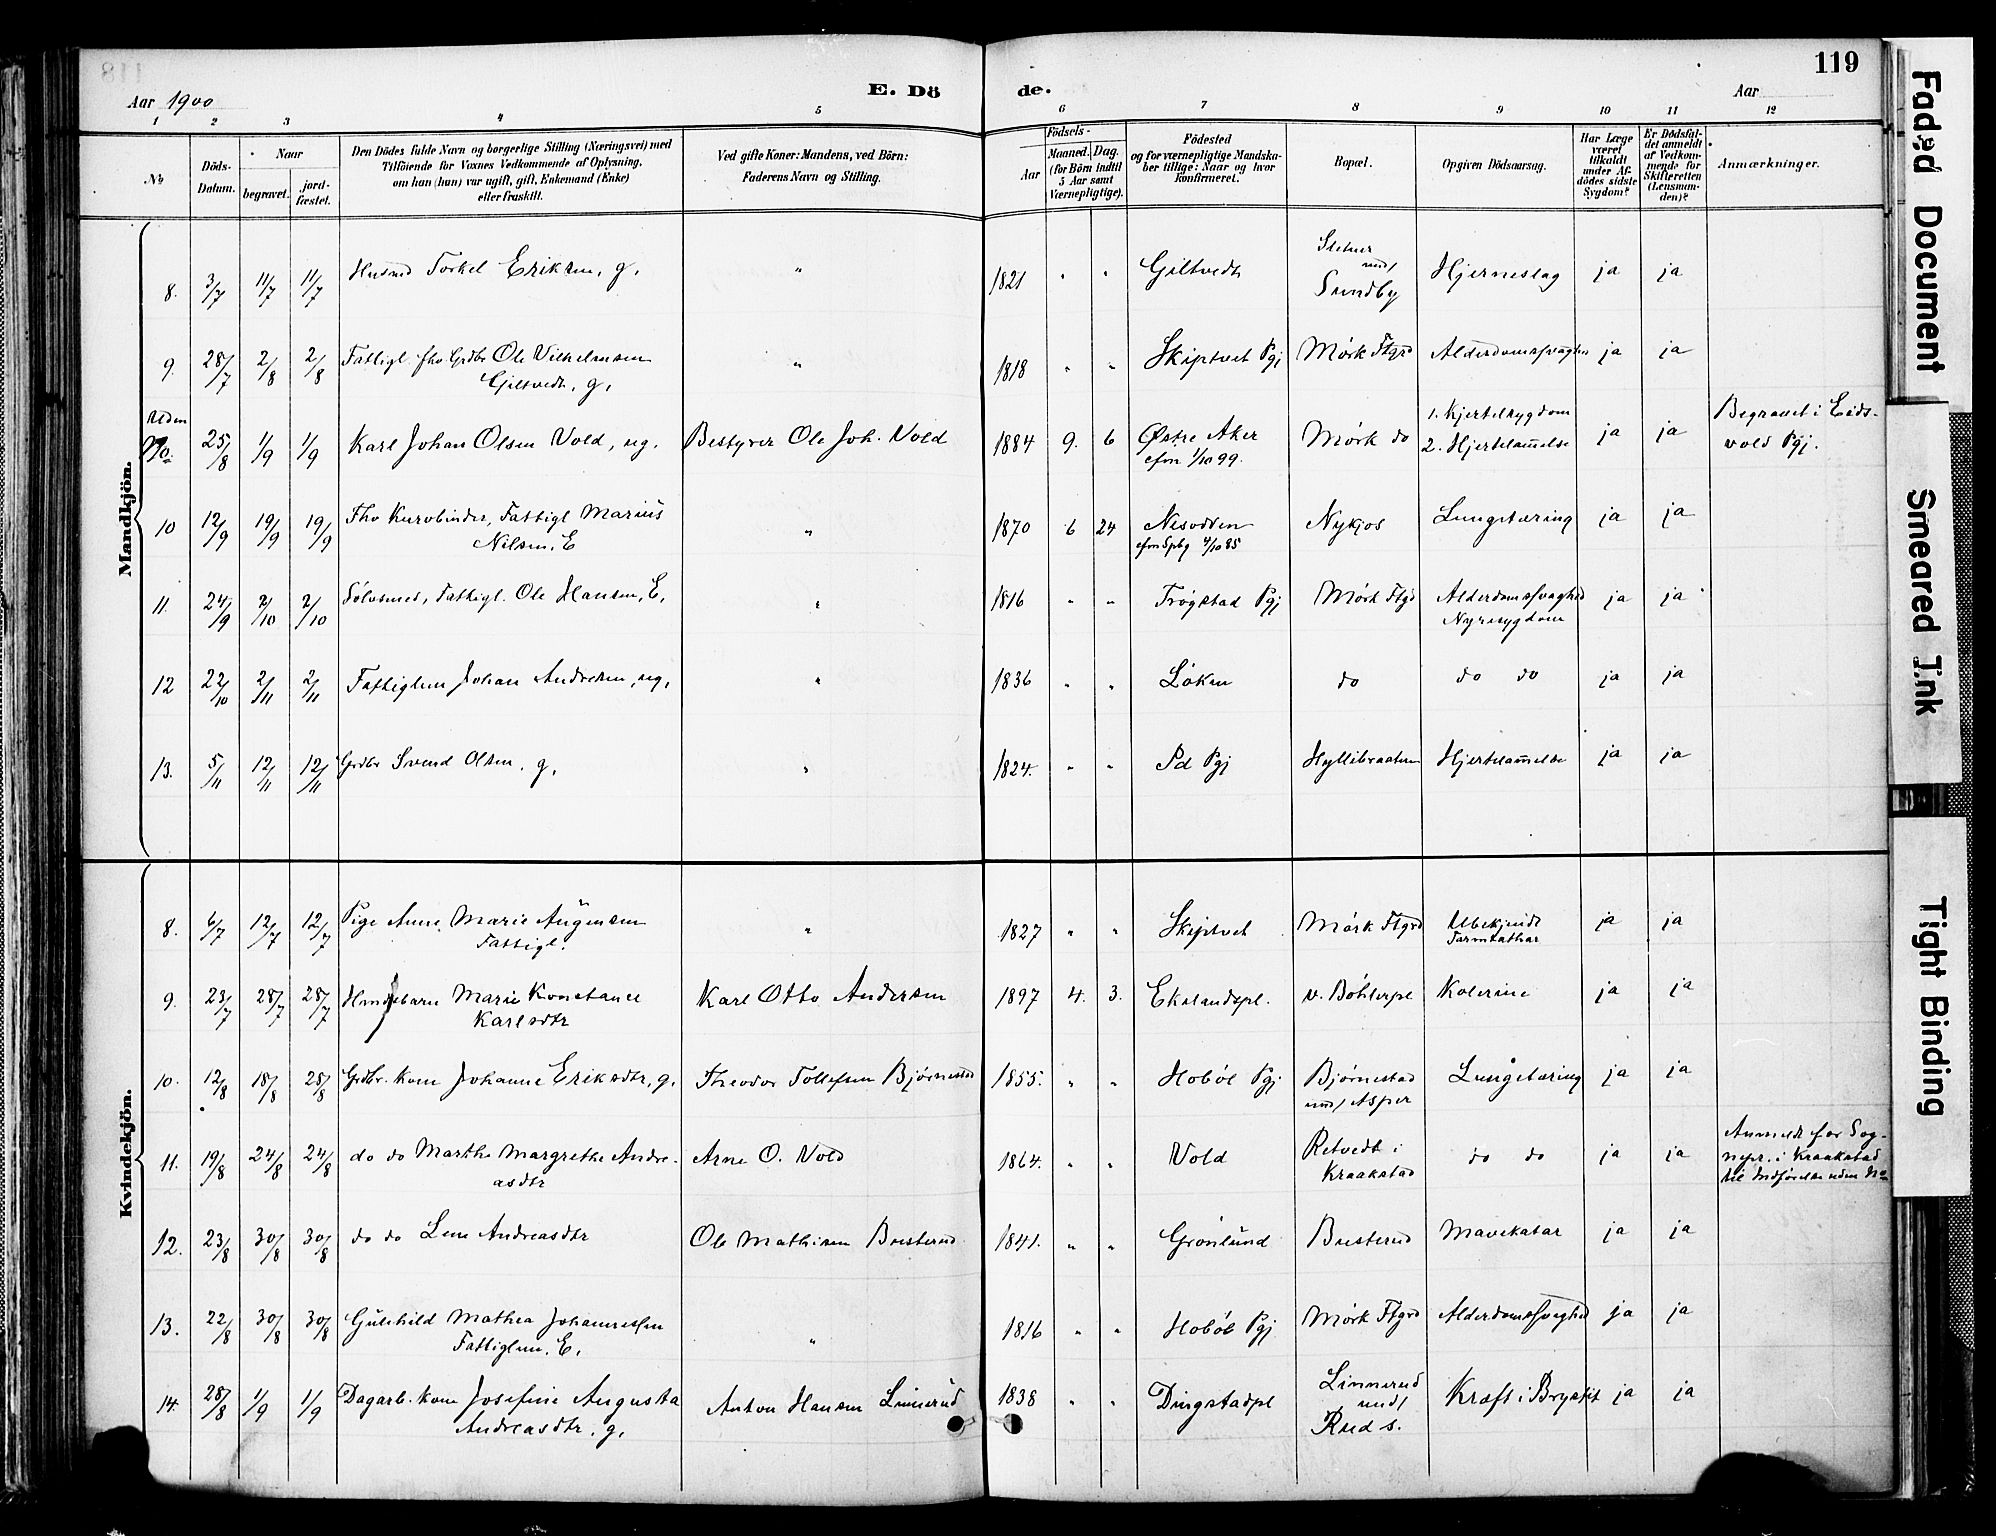 119
Aar 1900
E. Dö
de.
Aar
1 2 3 4 5 6 7 8 9 10 11 12
No
Döds-Datum.
Naar
begravet.
jord-fæstet.
Den Dödes fulde Navn og borgerlige Stilling (Næringsvei) med
Tilföiende for Voxnes Vedkommende af Oplysning,
om han (hun) var ugift, gift, Enkemand (Enke)
eller fraskilt.
Ved gifte Koner: Mandens, ved Börn:
Faderens Navn og Stilling.
Födsels-
Aar
Maaned. Dag.
(for Börn indtil
5 Aar samt
Værnepligtige).
Födested
og for værnepligtige Mandska-
ber tillige: Naar og hvor
konfirmeret.
Bopæl.
Opgiven Dödsaarsag.
Har Læge
været
tilkaldt
under Af-
dödes sidste
Sygdom?
Er Dödsfal-
det anmeldt
af Vedkom-
mende for
Skifteretten
(Lensman-
den)?
Anmærkninger.
Mandkjön.
8. 3/7 11/7 11/7 Husmd Torkel Eriksen, g, " 1821 " " Giltvedt
Sletner
und/
Sundby
Hjerneslag ja ja
9. 28/7 2/8 2/8 Fattigl. fhv. Grdbr Ole Vilhelmsen
Giltvedt, g, " 1818 " " Skiptvet Pgj Mørk Ftgrd Alderdomssvaghed ja ja
Uden
No. 25/8 1/9 1/9 Karl Johan Olsen Vold, ug, Bestyrer Ole Joh. Vold 1884 9. 6 Østre Aker
cfm 1/10 99.
Mørk do
1. Kjertelsygdom
2. Hjertelammelse
ja ja
Begravet i Eids-
vold Pgj.
10 12/9 19/9 19/9 Fhv Kurvbinder, Fattigl Marius
Nilsen, E " 1870 6 24 Nesodden
cfm Spbg 4/10 85
Nykjøs Lungetæring ja ja
11. 24/9 2/10 2/10 Fattigl. Ole Hansen, E, " 1816 " " Trøgstad Pgj Mørk Ftgd Alderdomssvaghed
Nyresygdom
ja ja
12 22/10 2/11 2/11 Fattiglem Johan Andresen, ug, " 1836 " " Løken do do do ja ja
13. 5/11 12/11 12/11 Grdbr Svend Olsen, g, " 1824. " " Sd Pgj Hyllibraaten Hjertelammelse ja ja
Kvindekjön.
8. 6/7 12/7 12/7 Pige Anne Marie Augensen
Fattigl. " 1827 " " Skiptvet Mørk Ftgrd Ubekjendt
Tarmkathar
ja ja
9. 23/7 28/7 28/7 Marie Konstance
Karlsdtr
Karl Otto Andersen 1897 4. 3. Ekelandspl. v. Bøhlerpl Kolerine ja ja
10. 12/8 18/8 28/8 Grdbr. kone Johanne Eriksdtr, g, Theodor Tollefsen Bjørnestad 1855. " " Hobøl Pgj Bjørnestad
und/ Asper
Lungetæring ja ja
11. 19/8 24/8 24/8 do do Marthe Margrethe Andre-
asdtr
Arne O. Vold 1864. " " Vold Retvedt i
Kraakstad
do do ja ja
Anmeldt for Sog-
nepr. i Kraakstad
til Indførelse uden No
12. 23/8 30/8 30/8 do do Lene Andreasdtr Ole Mathisen Busterud 1841. " " Grønlund Busterud Mavekatar ja ja
13. 22/8 30/8 30/8 Gulehild Mathea Johannessen
Fattiglem, E, " 1816 " " Hobøl Pgj Mørk Ftgrd Alderdomssvaghed ja ja
14. 28/8 1/9 1/9 Dagarb. kone Josefine Augusta
Andreasdtr, g,
Anton Hansen Linnerud 1838 " " Dingstadpl
Linnerud
und/
Rud s.
Kræft i Brystet ja ja
Faded Document
Smeared Ink
Tight Binding